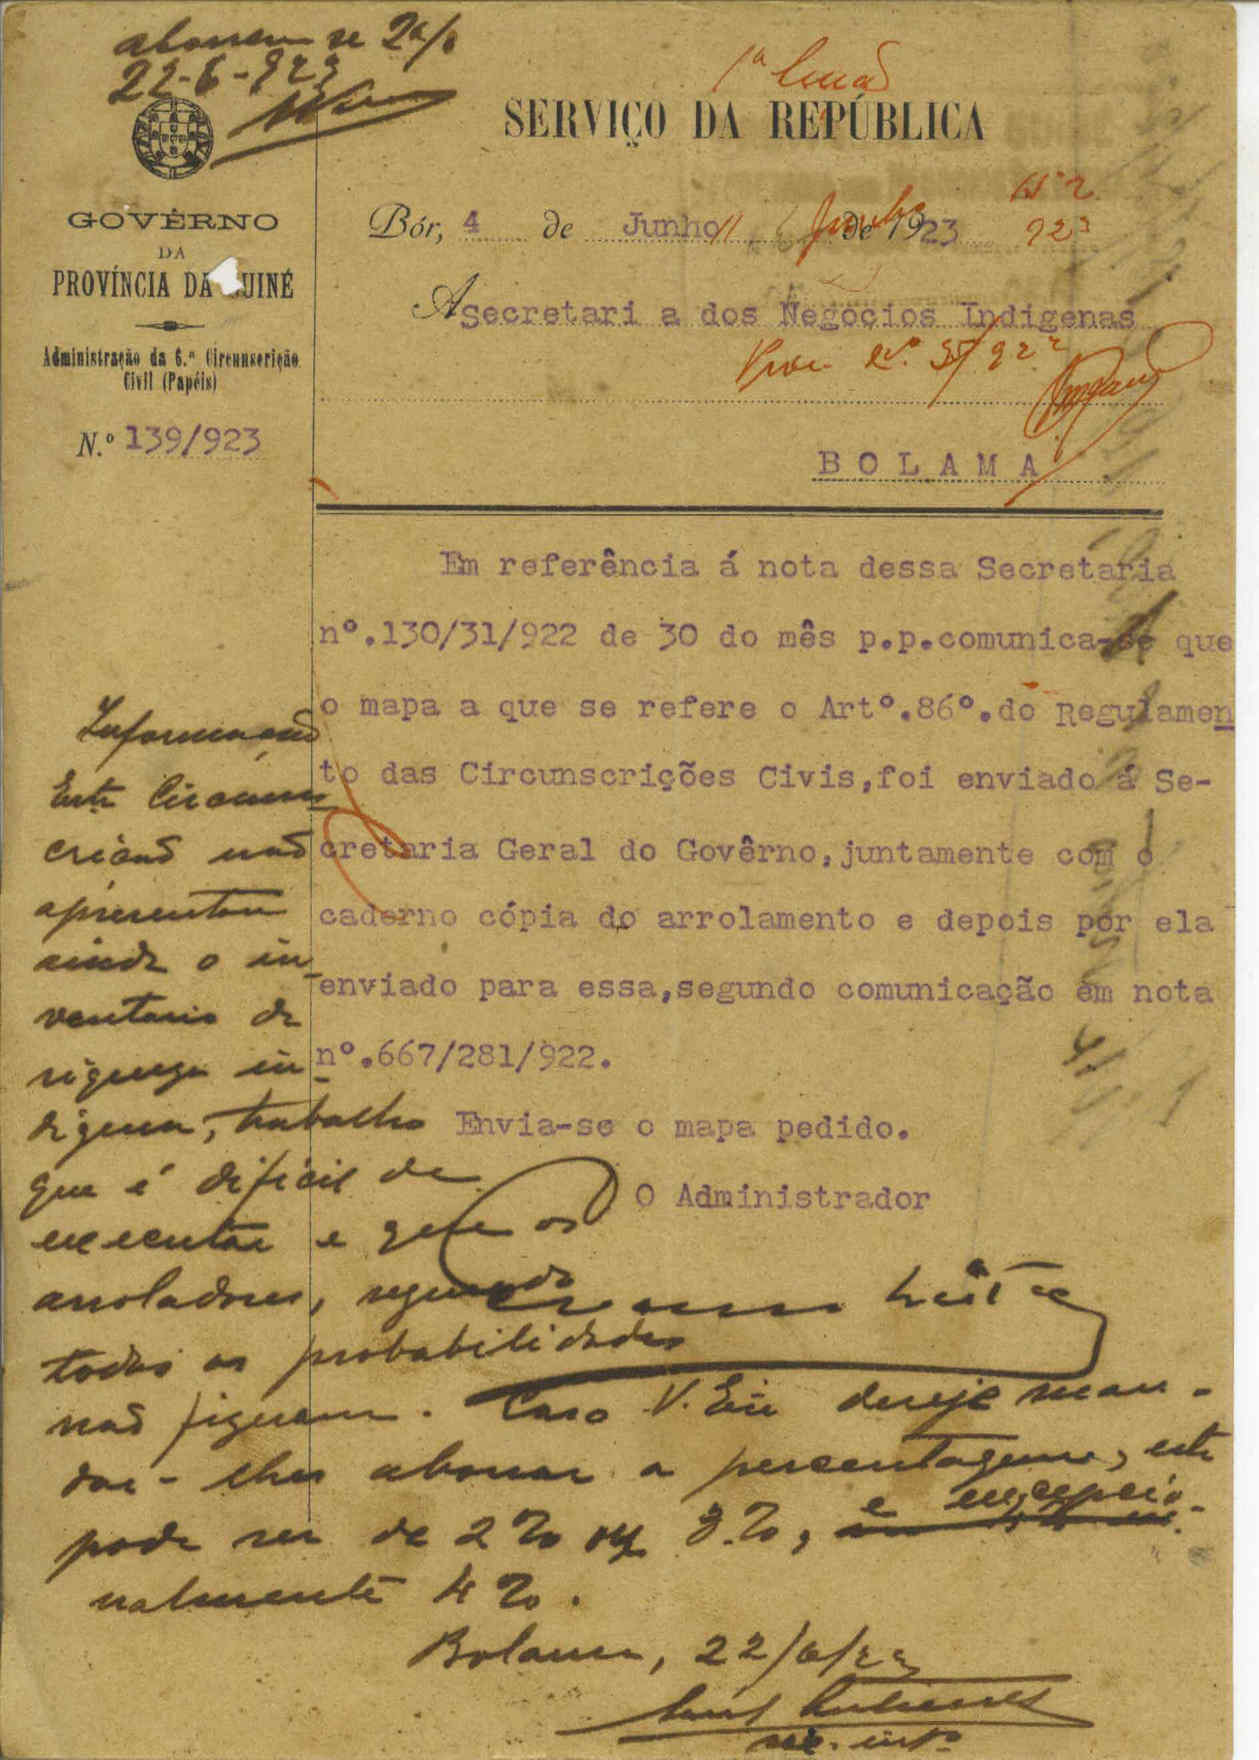 abonem se 2%
22-6-923
1ª
SERVIÇO DA REPÚBLICA
GOVÊRNO
DA
PROVÍNCIA DA GUINÉ
Administração da 6.ª Circunscrição
Civil (Papéis)
N.º 139/923
Bór, 4 de Junho de 1923
11 Junho
923
A Secretari a dos Negócios Indigenas
BOLAMA
Em referência á nota dessa Secretaria
nº.130/31/922 de 30 do mês p.p.comunica-se que
o mapa a que se refere o Artº.86º.do Regulamen
to das Circunscrições Civis,foi enviado á Se-
cretaria Geral do Govêrno,juntamente com o
caderno cópia do arrolamento e depois por ela
enviado para essa,segundo comunicação em nota
nº.667/281/922.
Envia-se o mapa pedido.
O Administrador
Informação
Esta Circuns
crição não
apresentou
ainda o in-
ventario da
riqueza in-
digena, trabalho
que é dificil de
executar e que os
arroladores, segundo
todas as probabilidades
não fizeram. Caso V. Exª deseje man-
dar-lhes abonar a percentagem, esta
pode ser de 2% ou 3%, e excepcio-
nalmente 4%.
Bolama, 22/6/23